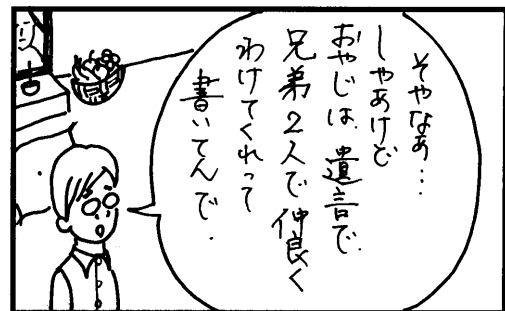 そやなぁ…
しゃあけど
おやじは、遺言で、
兄弟2人で仲良く
わけてくれって
書いてんで.